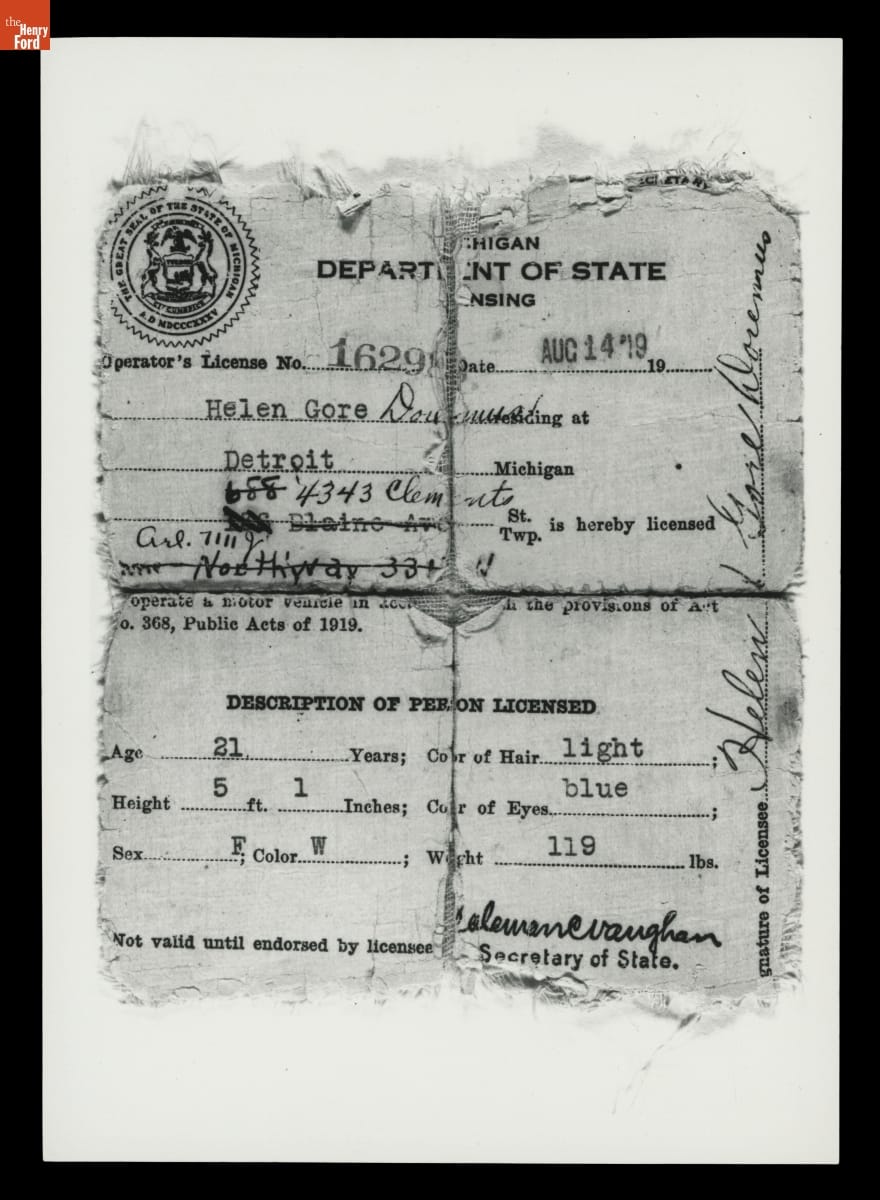 the
Henry
Ford
THE GREAT SEAL OF THE STATE OF MICHIGAN
A.D. MDCCCXXXV
CHIGAN
DEPART ENT OF STATE
ENSING
Operator's License No. 1629 Date AUG 14 '19 19
Helen Gore Doremus residing at
Detroit Michigan
658 4343 Clements
Blaine Ave St. Twp. is hereby licensed
Arl. 7111 J
Northway 33
operate a motor vehicle in acc h the provisions of Act
o. 368, Public Acts of 1919.
DESCRIPTION OF PERSON LICENSED
Age 21 Years; Co r of Hair light ;
Height 5 ft. 1 Inches; Co r of Eyes blue ;
Sex F; Color W ; W ght 119 lbs.
Not valid until endorsed by licensee
Coleman C Vaughan
Secretary of State.
gnature of Licensee Helen Gore Doremus